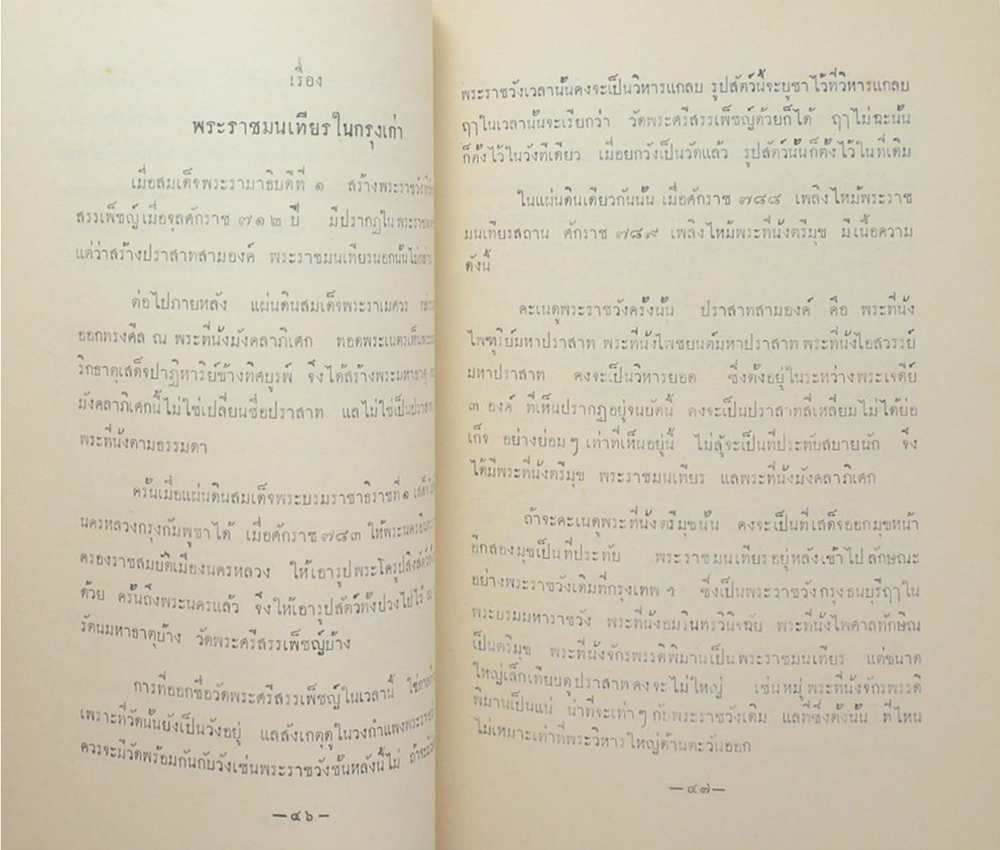 เรื่อง
พระราชมนเทียรในกรุงเก่า
เมื่อสมเด็จพระรามาธิบดีที่ ๑ สร้างพระราชวัง
สรรเพ็ชญ์เมื่อจุลศักราช ๗๑๒ ปี มีปรากฏในพระราช
แต่ว่าสร้างปราสาทสามองค์ พระราชมนเทียรนอกนั้นไม่กล่าว
ต่อไปภายหลัง แผ่นดินสมเด็จพระราเมศวร
ออกทรงศีล ณ พระที่นั่งมังคลาภิเศก ทอดพระเนตรเห็นพระ
ริกธาตุเสด็จปาฏิหาริย์ข้างทิศบูรพ์ จึงได้สร้างพระมหาธาตุ
มังคลาภิเศกนี้ไม่ใช่เปลี่ยนชื่อปราสาท แลไม่ใช่เป็นปราสาท
พระที่นั่งตามธรรมดา
ครั้นเมื่อแผ่นดินสมเด็จพระบรมราชาธิราชที่ ๑
นครหลวงกรุงกัมพูชาได้ เมื่อศักราช ๗๘๓ ให้พระนครอินทร
ครองราชสมบัติเมืองนครหลวง ให้เอารูปพระโครูปสิงห์สัตว์
ด้วย ครั้นถึงพระนครแล้ว จึงให้เอารูปสัตว์ทั้งปวงไปไว้ ณ
รัตนมหาธาตุบ้าง วัดพระศรีสรรเพ็ชญ์บ้าง
การที่ออกชื่อวัดพระศรีสรรเพ็ชญ์ในเวลานี้
เพราะที่วัดนั้นยังเป็นวังอยู่ แลสังเกตุดูในวงกำแพงพระราช
ควรจะมีวัดพร้อมกันกับวังเช่นพระราชวังชั้นหลังนี้ไม่
— ๔๖ —
พระราชวังเวลานั้นคงจะเป็นวิหารแกลบ รูปสัตว์นี้จะบูชาไว้ที่วิหารแกลบ
ฤๅในเวลานั้นจะเรียกว่า วัดพระศรีสรรเพ็ชญ์ด้วยก็ได้ ฤๅไม่ฉะนั้น
ก็ตั้งไว้ในวังทีเดียว เมื่อยกวังเป็นวัดแล้ว รูปสัตว์นั้นก็ตั้งไว้ในที่เดิม
ในแผ่นดินเดียวกันนั้น เมื่อศักราช ๗๘๘ เพลิงไหม้พระราช
มนเทียรสถาน ศักราช ๗๘๙ เพลิงไหม้พระที่นั่งตรีมุข มีเนื้อความ
ดังนี้
คะเนดูพระราชวังครั้งนั้น ปราสาทสามองค์ คือ พระที่นั่ง
ไพฑูริย์มหาปราสาท พระที่นั่งไพชยนต์มหาปราสาท พระที่นั่งไอสวรรย์
มหาปราสาท คงจะเป็นวิหารยอด ซึ่งตั้งอยู่ในระหว่างพระเจดีย์
๓ องค์ ที่เห็นปรากฏอยู่จนบัดนี้ คงจะเป็นปราสาทสี่เหลี่ยมไม่ได้ย่อ
เก็จ อย่างย่อม ๆ เท่าที่เห็นอยู่นี้ ไม่สู้จะเป็นที่ประทับสบายนัก จึง
ได้มีพระที่นั่งตรีมุข พระราชมนเทียร แลพระที่นั่งมังคลาภิเศก
ถ้าจะคะเนดูพระที่นั่งตรีมุขนั้น คงจะเป็นที่เสด็จออกมุขหน้า
อีกสองมุขเป็นที่ประทับ พระราชมนเทียรอยู่หลังเข้าไป ลักษณะ
อย่างพระราชวังเดิมที่กรุงเทพ ฯ ซึ่งเป็นพระราชวังกรุงธนบุรีฤๅใน
พระบรมมหาราชวัง พระที่นั่งอมรินทรวินิจฉัย พระที่นั่งไพศาลทักษิณ
เป็นตรีมุข พระที่นั่งจักรพรรดิพิมานเป็นพระราชมนเทียร แต่ขนาด
ใหญ่เล็กเทียบดูปราสาทคงจะไม่ใหญ่ เช่นหมู่พระที่นั่งจักรพรรดิ
พิมานเป็นแน่ น่าที่จะเท่า ๆ กับพระราชวังเดิม แลที่ซึ่งตั้งนั้น ที่ไหน
ไม่เหมาะเท่าที่พระวิหารใหญ่ด้านตะวันออก
— ๔๗ —